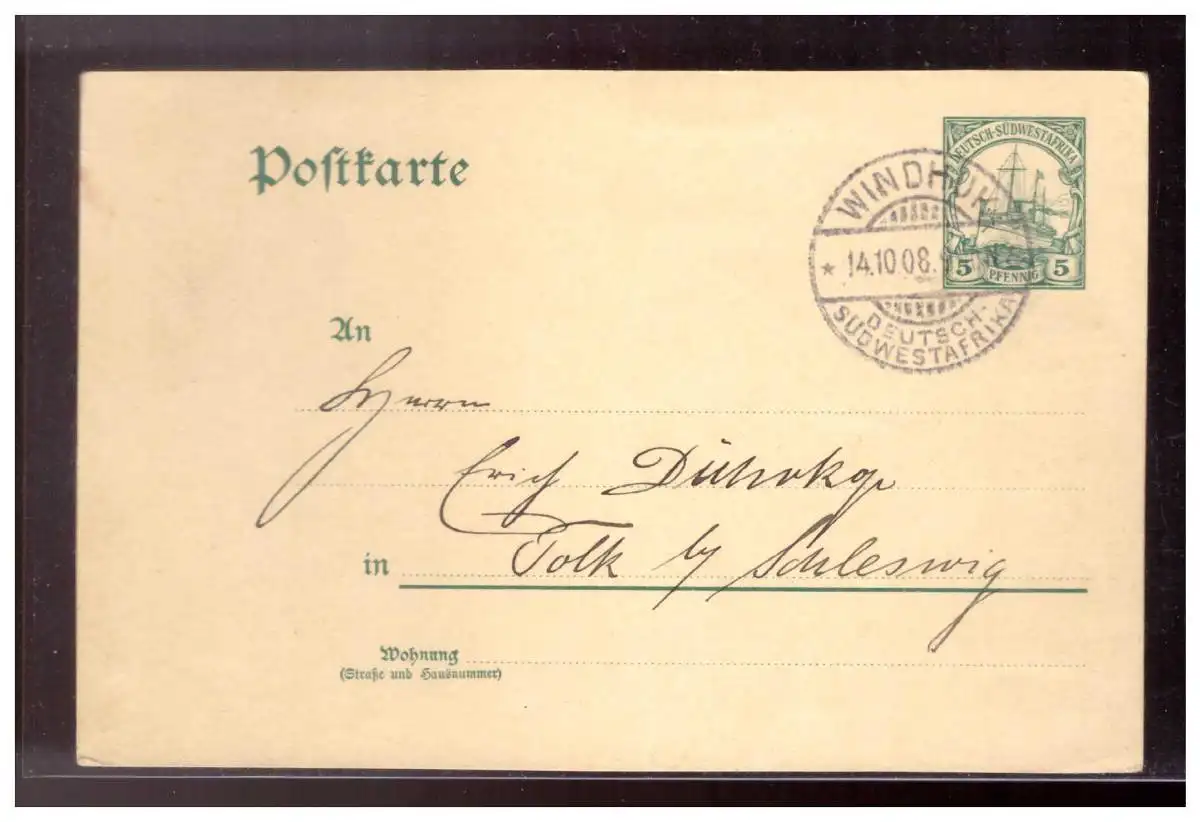 Postkarte
DEUTSCH-SÜDWESTAFRIKA
5 PFENNIG 5
WINDHUK
* 14.10.08.
DEUTSCH-
SÜDWESTAFRIKA
An
Herrn
Erich
in Tolk by Schleswig
Wohnung
(Straße und Hausnummer)